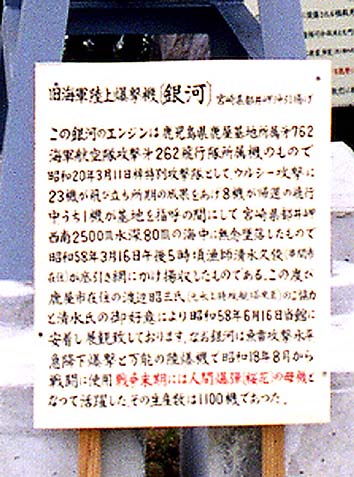 旧海軍陸上爆撃機(銀河) 宮崎県都井岬沖引揚げ
この銀河のエンジンは鹿児島県鹿屋基地所属才762
海軍航空隊攻撃才262飛行隊所属機のもので
昭和20年3月11日梓特別攻撃隊としてウルシー攻撃に
23機が飛び立ち所期の成果をあげ8機が帰還の飛行
中うち1機が基地を指呼の間にして宮崎県都井岬
西南2500㍍水深80㍍の海中に無念墜落したもので
昭和58年3月16日午後5時頃漁師清水久俊(串間市
在住)が底引き網にかけ揚収したものである。この度
鹿屋市在住の渡辺昭三氏 のご協力
と清水氏の御好意により昭和58年6月16日当館に
安着し展観致しております。なお銀河は魚雷攻撃水平
急降下爆撃と万能の陸爆機で昭和18年8月から
戦闘に使用戦争末期には人間爆弾(桜花)の母機と
なって活躍したその生産数は1100機であった。